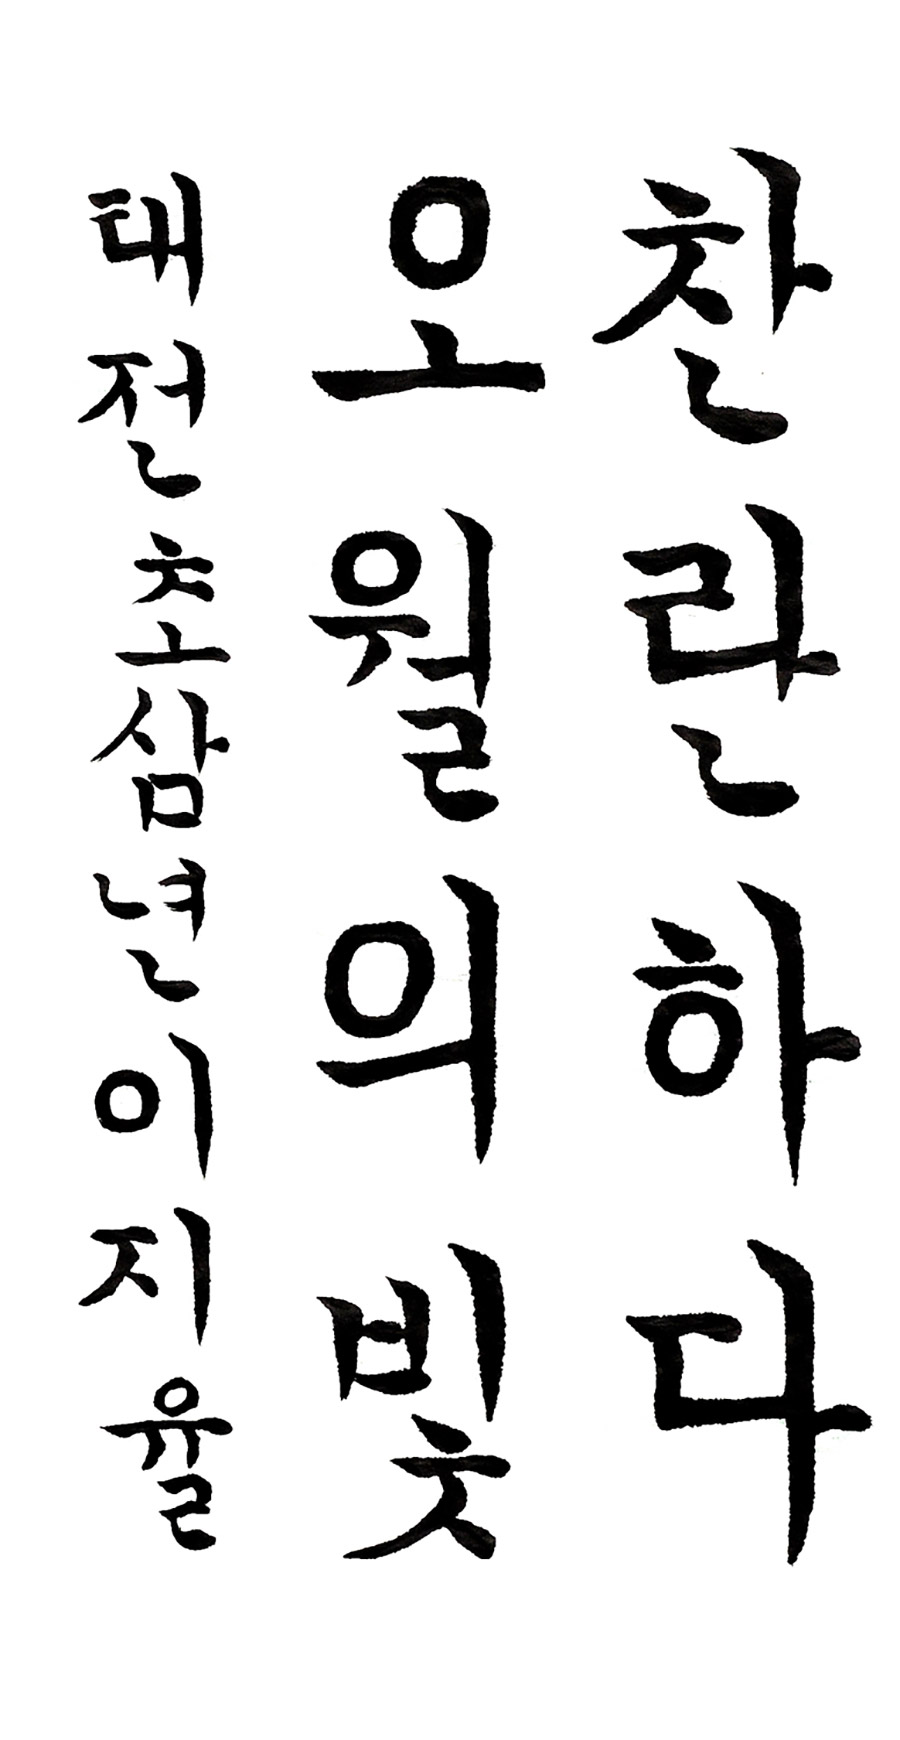 찬란하다
오월의빛
태전초삼년이지율